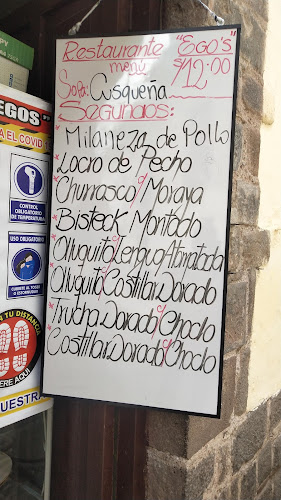 Restaurante "EGO'S"
menú S/12.00
Sopa: Cusqueña
Segundos:
Milaneza de Pollo
Locro de Pecho
Churrasco c/ Moraya
Bisteck Montado
Olluquito c/ Lengua Atomatada
Olluquito c/ Costillar Dorado
Trucha Dorada c/ Choclo
Costillar Dorado c/ Choclo
EGOS
A EL COVID 1
CONTROL
OBLIGATORIO
DE TEMPERATURA
USO OBLIGATORIO
A TU DISTANCIA
ERE AQUI
UESTRA